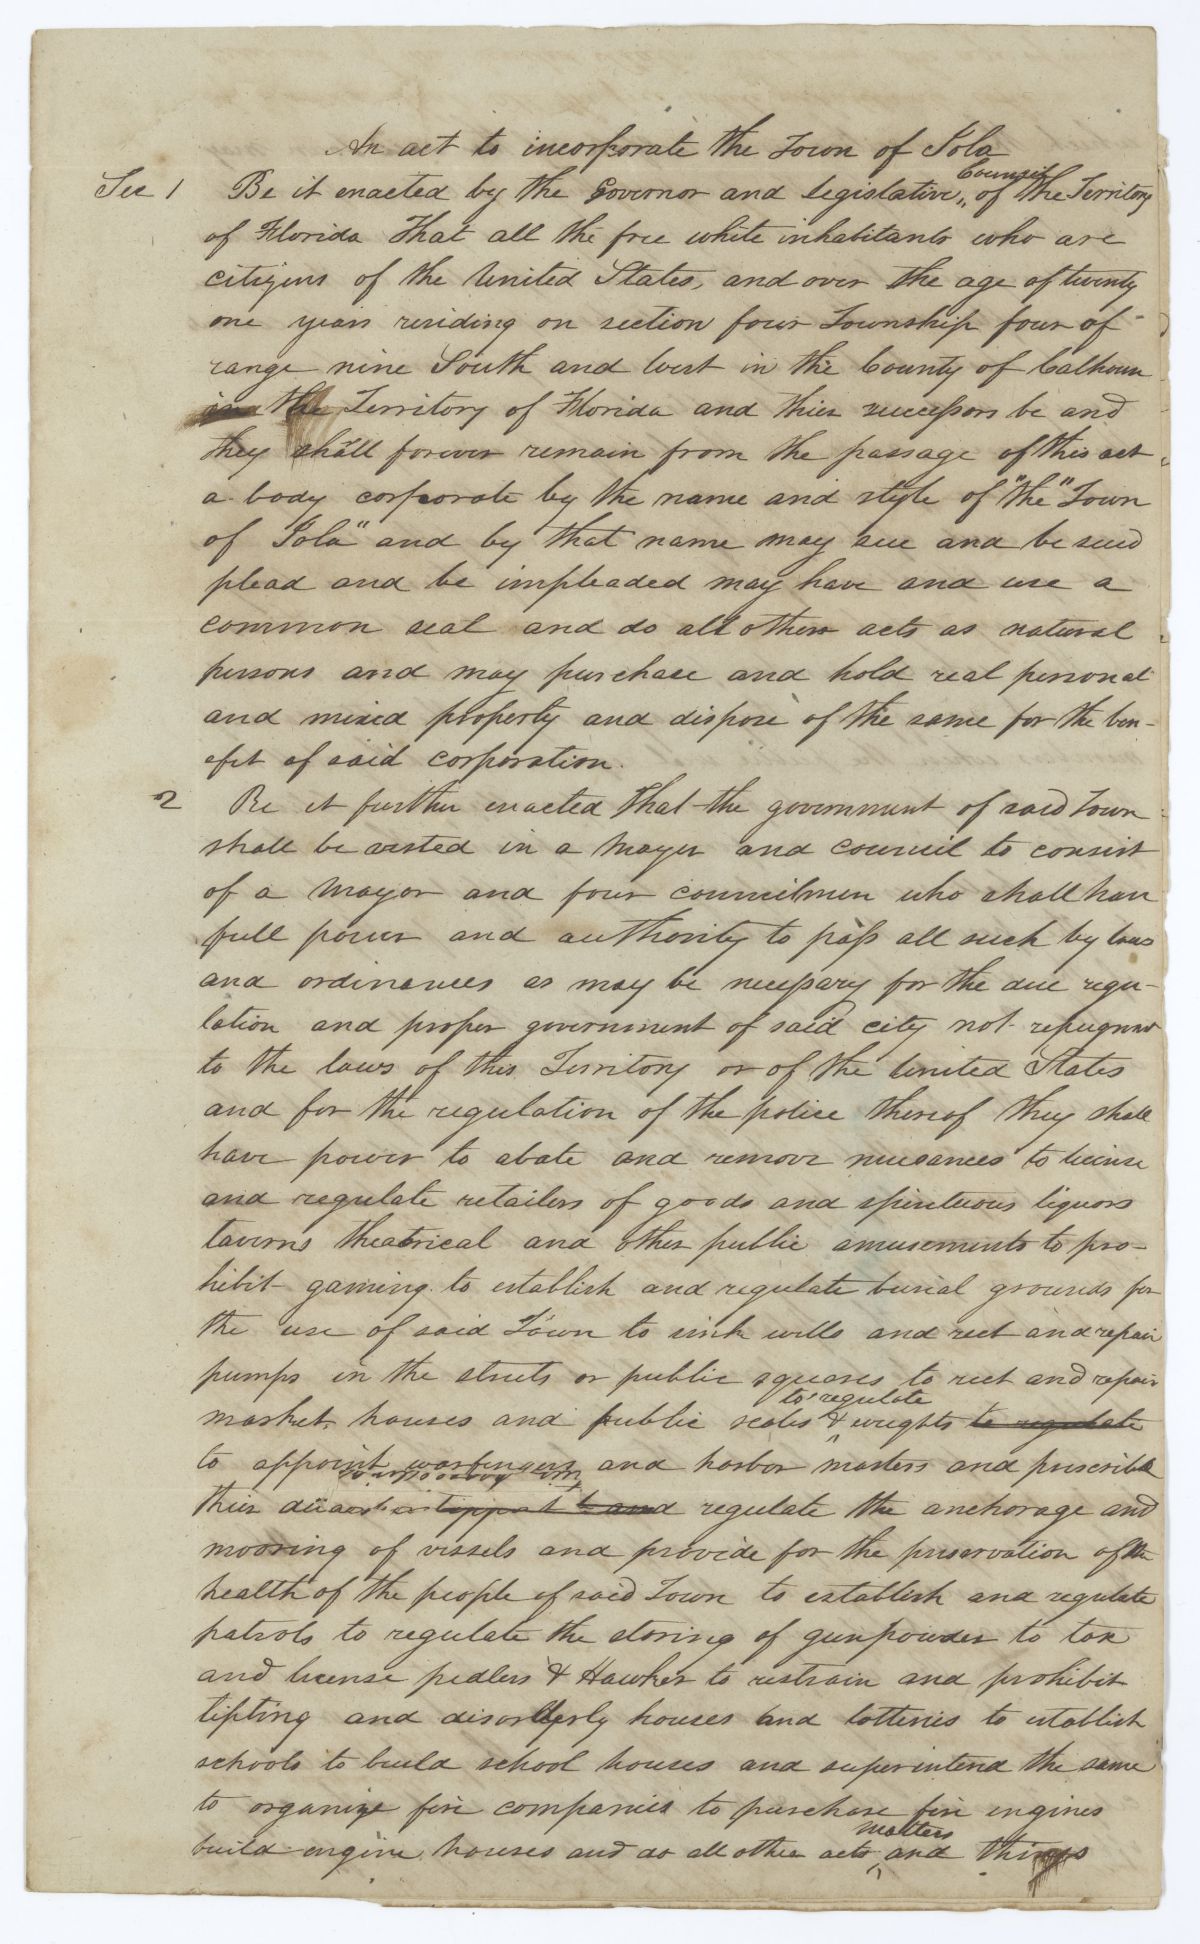 An act to incorporate the Town of Iola
Sec 1 Be it enacted by the Governor and Legislative Council of the Territory
of Florida That all the free white inhabitants who are
citizens of the United States, and over the age of twenty
one years residing on section four Township four of
range nine South and West in the County of Calhoun
in the Territory of Florida and thier successors be and
they shall forever remain from the passage of this act
a body corporate by the name and style of "the" Town
of Iola" and by that name may sue and be sued
plead and be impleaded may have and use a
common seal and do all others acts as natural
persons and may purchase and hold real personal
and mixed property and dispose of the same for the ben-
efit of said corporation.
2 Be it further enacted That the government of said Town
shall be vested in a Mayer and council to consist
of a Mayor and four councilmen who shall have
full power and authority to pass all such by laws
and ordinances as may be necessary for the due regu-
lation and proper government of said city not repugnant
to the laws of this Territory or of the United States
and for the regulation of the police thereof they shall
have power to abate and remove nuesances to license
and regulate retailers of goods and spirituous liquors
taverns theatrical and other public amusements to pro-
hibit gaming to establish and regulate burial grounds for
the use of said Town to sink wells and rect and repair
pumps in the streets or public squares to rect and repair
market houses and public scales & to regulate weights to regulate
to appoint warfengers and harbor masters and prescribe
thier and regulate the anchorage and
mooring of vissels and provide for the preservation of the
health of the people of said Town to establish and regulate
patrols to regulate the storing of gunpowder to tax
and license pedlers & Hawker to restrain and prohibit
tipling and disorderly houses and lotteries to establish
schools to build school houses and superintend the same
to organize fire companies to purchase fire engines
build engine houses and do all other acts matters and things